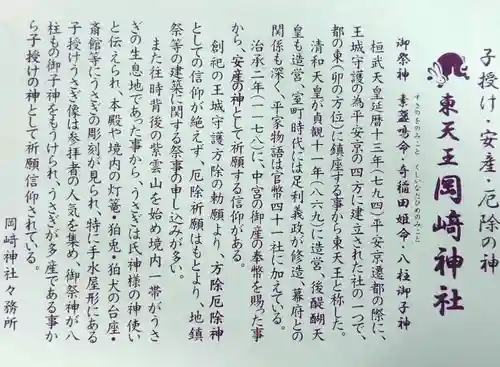 子授け・安産・厄除の神
東天王 岡﨑神社
御祭神 素盞鳴命・奇稲田姫命・八柱御子神
すさのをのみこと くしいなだひめのみこと
桓武天皇延暦十三年（七九四）平安京遷都の際に、
王城守護の為平安京の四方に建立された社の一つで、
都の東（卯の方位）に鎮座する事から東天王と称した。
清和天皇が貞観十一年（八六九）に造営、後醍醐天
皇も造営、室町時代には足利義政が修造、幕府との
関係も深く、平家物語は官幣四十一社に加えている。
治承二年（一一七八）に、中宮の御産の奉幣を賜った事
から、安産の神として祈願する信仰がある。
創祀の王城守護方除の勅願より、方除厄除神
としての信仰が絶えず、厄除祈願はもとより、地鎮
祭等の建築に関する祭事の申し込みが多い。
また往時背後の紫雲山を始め境内一帯がうさ
ぎの生息地であった事から、うさぎは氏神様の神使い
と伝えられ、本殿や境内の灯篭・狛兎・狛犬の台座・
斎館等にうさぎの彫刻が見られ、特に手水屋形にある
子授けうさぎ像は参拝者の人気を集め、御祭神が八
柱もの御子神をもうけられ、うさぎが多産である事か
ら子授けの神として祈願信仰されている。
岡﨑神社々務所